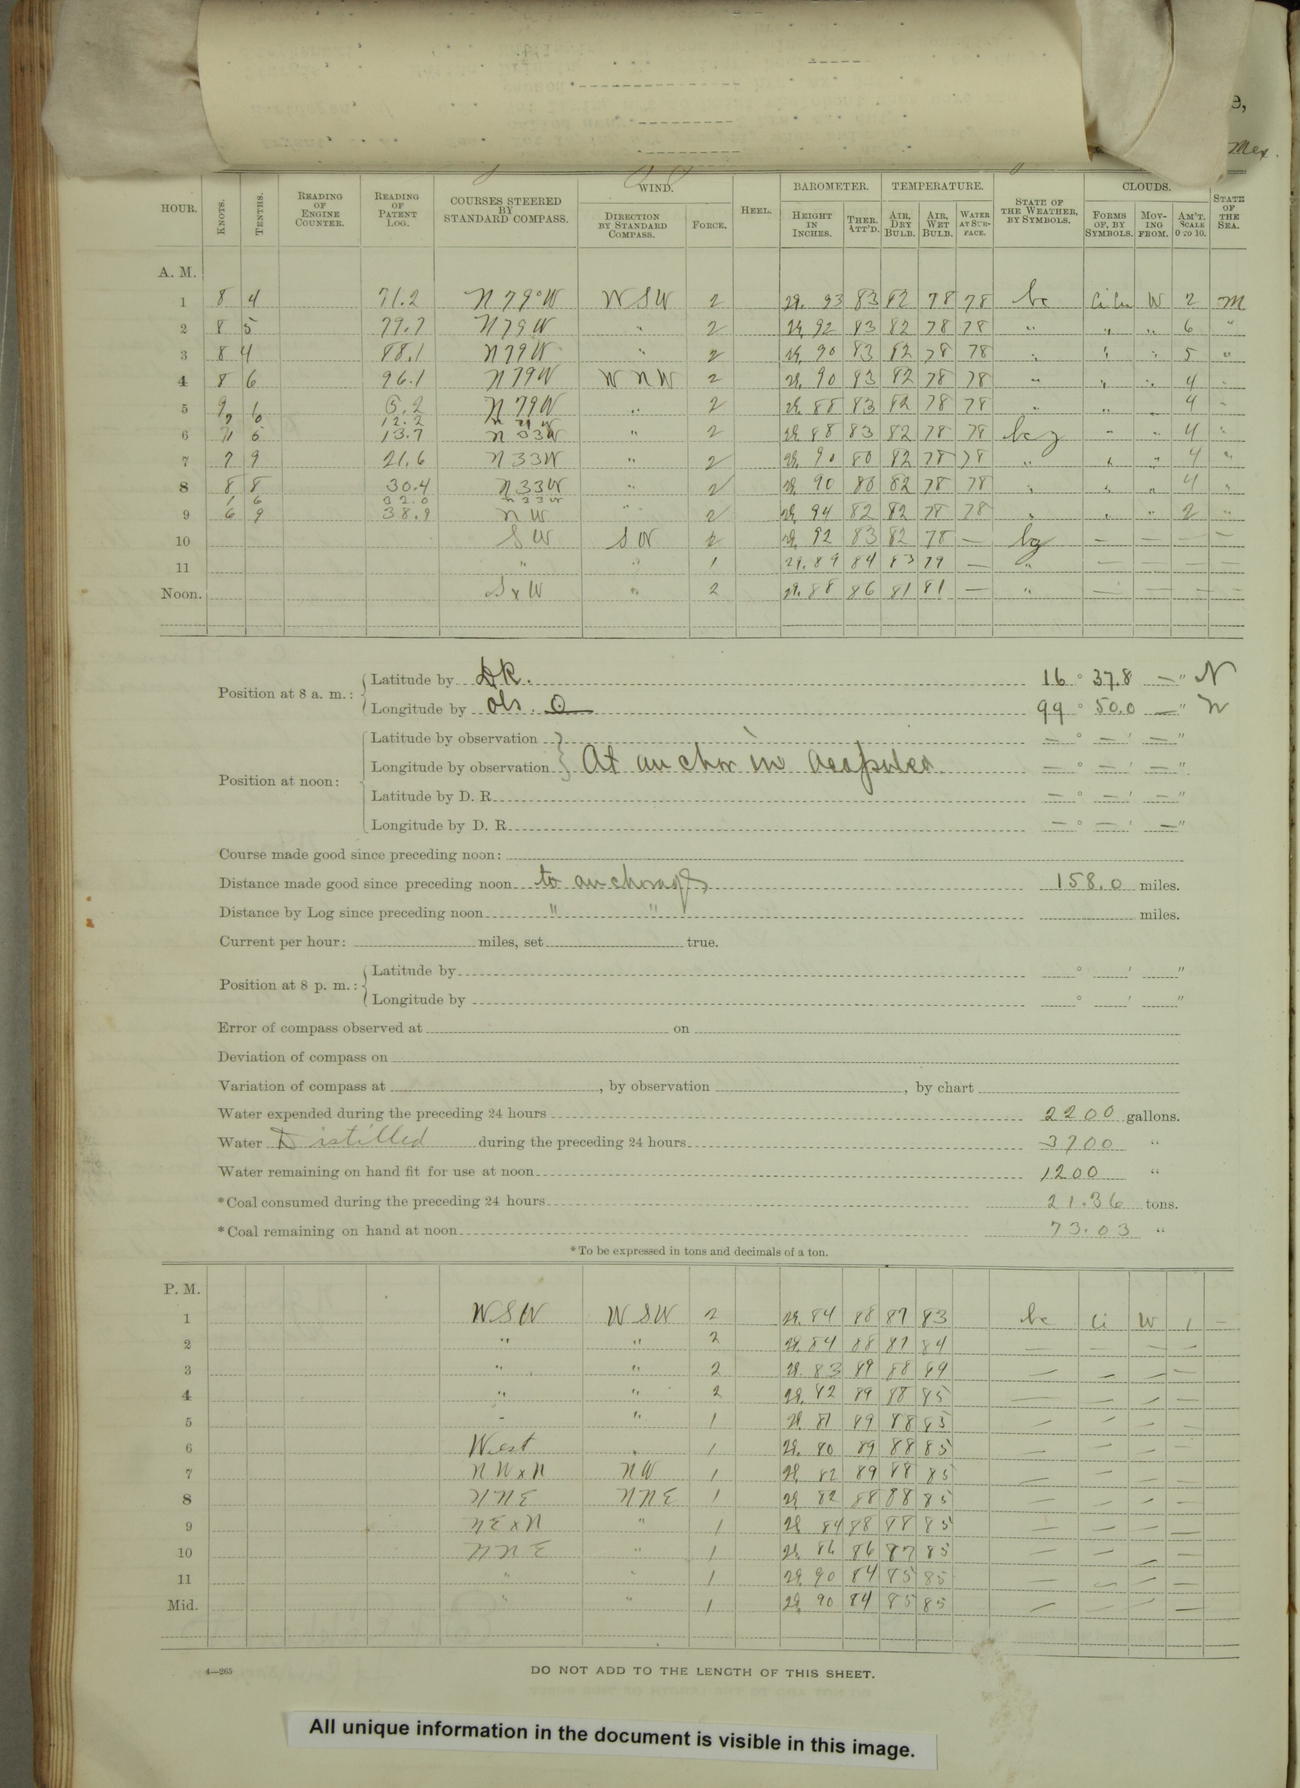 e,
Mex.
HOUR. KNOTS. TENTHS. READING OF ENGINE COUNTER. READING OF PATENT LOG. COURSES STEERED BY STANDARD COMPASS. WIND. DIRECTION BY STANDARD COMPASS. FORCE. HEEL. BAROMETER. HEIGHT IN INCHES. THER. ATT'D. TEMPERATURE. AIR, DRY BULB. AIR, WET BULB. WATER AT SURFACE. STATE OF THE WEATHER, BY SYMBOLS. CLOUDS. FORMS OF, BY SYMBOLS. MOVING FROM. AM'T. SCALE 0 TO 10. STATE OF THE SEA.
A. M.
1 8 4 71.2 N 79° W WSW 2 29. 93 83 82 78 78 bc Ci Cu W 2 M
2 8 5 79.7 N 79 W " 2 29. 92 83 82 78 78 " " " 6 "
3 8 4 88.1 N 79 W " 2 29. 90 83 82 78 78 " " " 5 "
4 8 6 96.1 N 79 W WNW 2 29. 90 83 82 78 78 " " " 4 "
5 9 1 5.2 N 79 W " 2 29. 88 83 82 78 78 " " " 4 "
12.2
6 5 13.7 N 33 W " 2 29. 88 83 82 78 78 bcz " " 4 "
7 7 9 21.6 N 33 W " 2 29. 90 80 82 78 78 " " " 4 "
8 8 8 30.4 N 33 W " 2 29. 90 80 82 78 78 " " " 4 "
1 6 32.0 N 33 W
9 6 9 38.9 NW " 2 29. 94 82 82 78 78 " " " 2 "
10 SW SW 2 29. 92 83 82 78 — bz — — — —
11 " " 1 29. 89 84 83 79 — " — — — —
Noon. S x W " 2 29. 88 86 81 81 — " — — — —
Position at 8 a. m.: Latitude by D.R. 16 ° 37.8 — " N
Longitude by obs. ☉ 99 ° 50.0 — " W
Position at noon: Latitude by observation — ° — ' — "
Longitude by observation At anchor in Acapulco — ° — ' — "
Latitude by D. R. — ° — ' — "
Longitude by D. R. — ° — ' — "
Course made good since preceding noon:
Distance made good since preceding noon to anchorage 158.0 miles.
Distance by Log since preceding noon " " miles.
Current per hour: miles, set true.
Position at 8 p. m.: Latitude by ° ' "
Longitude by ° ' "
Error of compass observed at on
Deviation of compass on
Variation of compass at , by observation , by chart
Water expended during the preceding 24 hours 2200 gallons.
Water Distilled during the preceding 24 hours 3700 "
Water remaining on hand fit for use at noon 1200 "
*Coal consumed during the preceding 24 hours 21.36 tons.
*Coal remaining on hand at noon 73.03 "
*To be expressed in tons and decimals of a ton.
P. M.
1 WSW WSW 2 29. 84 88 87 83 bc Ci W 1 —
2 " " 2 29. 84 88 87 84 — — — —
3 " " 2 29. 83 89 88 84 — — — —
4 " " 2 29. 82 89 88 85 — — — —
5 " " 1 29. 81 89 88 85 — — — —
6 West " 1 29. 80 89 88 85 — — — —
7 NW x N NW 1 29. 82 89 88 85 — — — —
8 NNE NNE 1 29. 82 88 88 85 — — — —
9 NE x N " 1 29. 84 88 88 85 — — — —
10 NNE " 1 29. 86 86 87 85 — — — —
11 " " 1 29. 90 84 85 85 — — — —
Mid. " " 1 29. 90 84 85 85 — — — —
4—265
DO NOT ADD TO THE LENGTH OF THIS SHEET.
All unique information in the document is visible in this image.